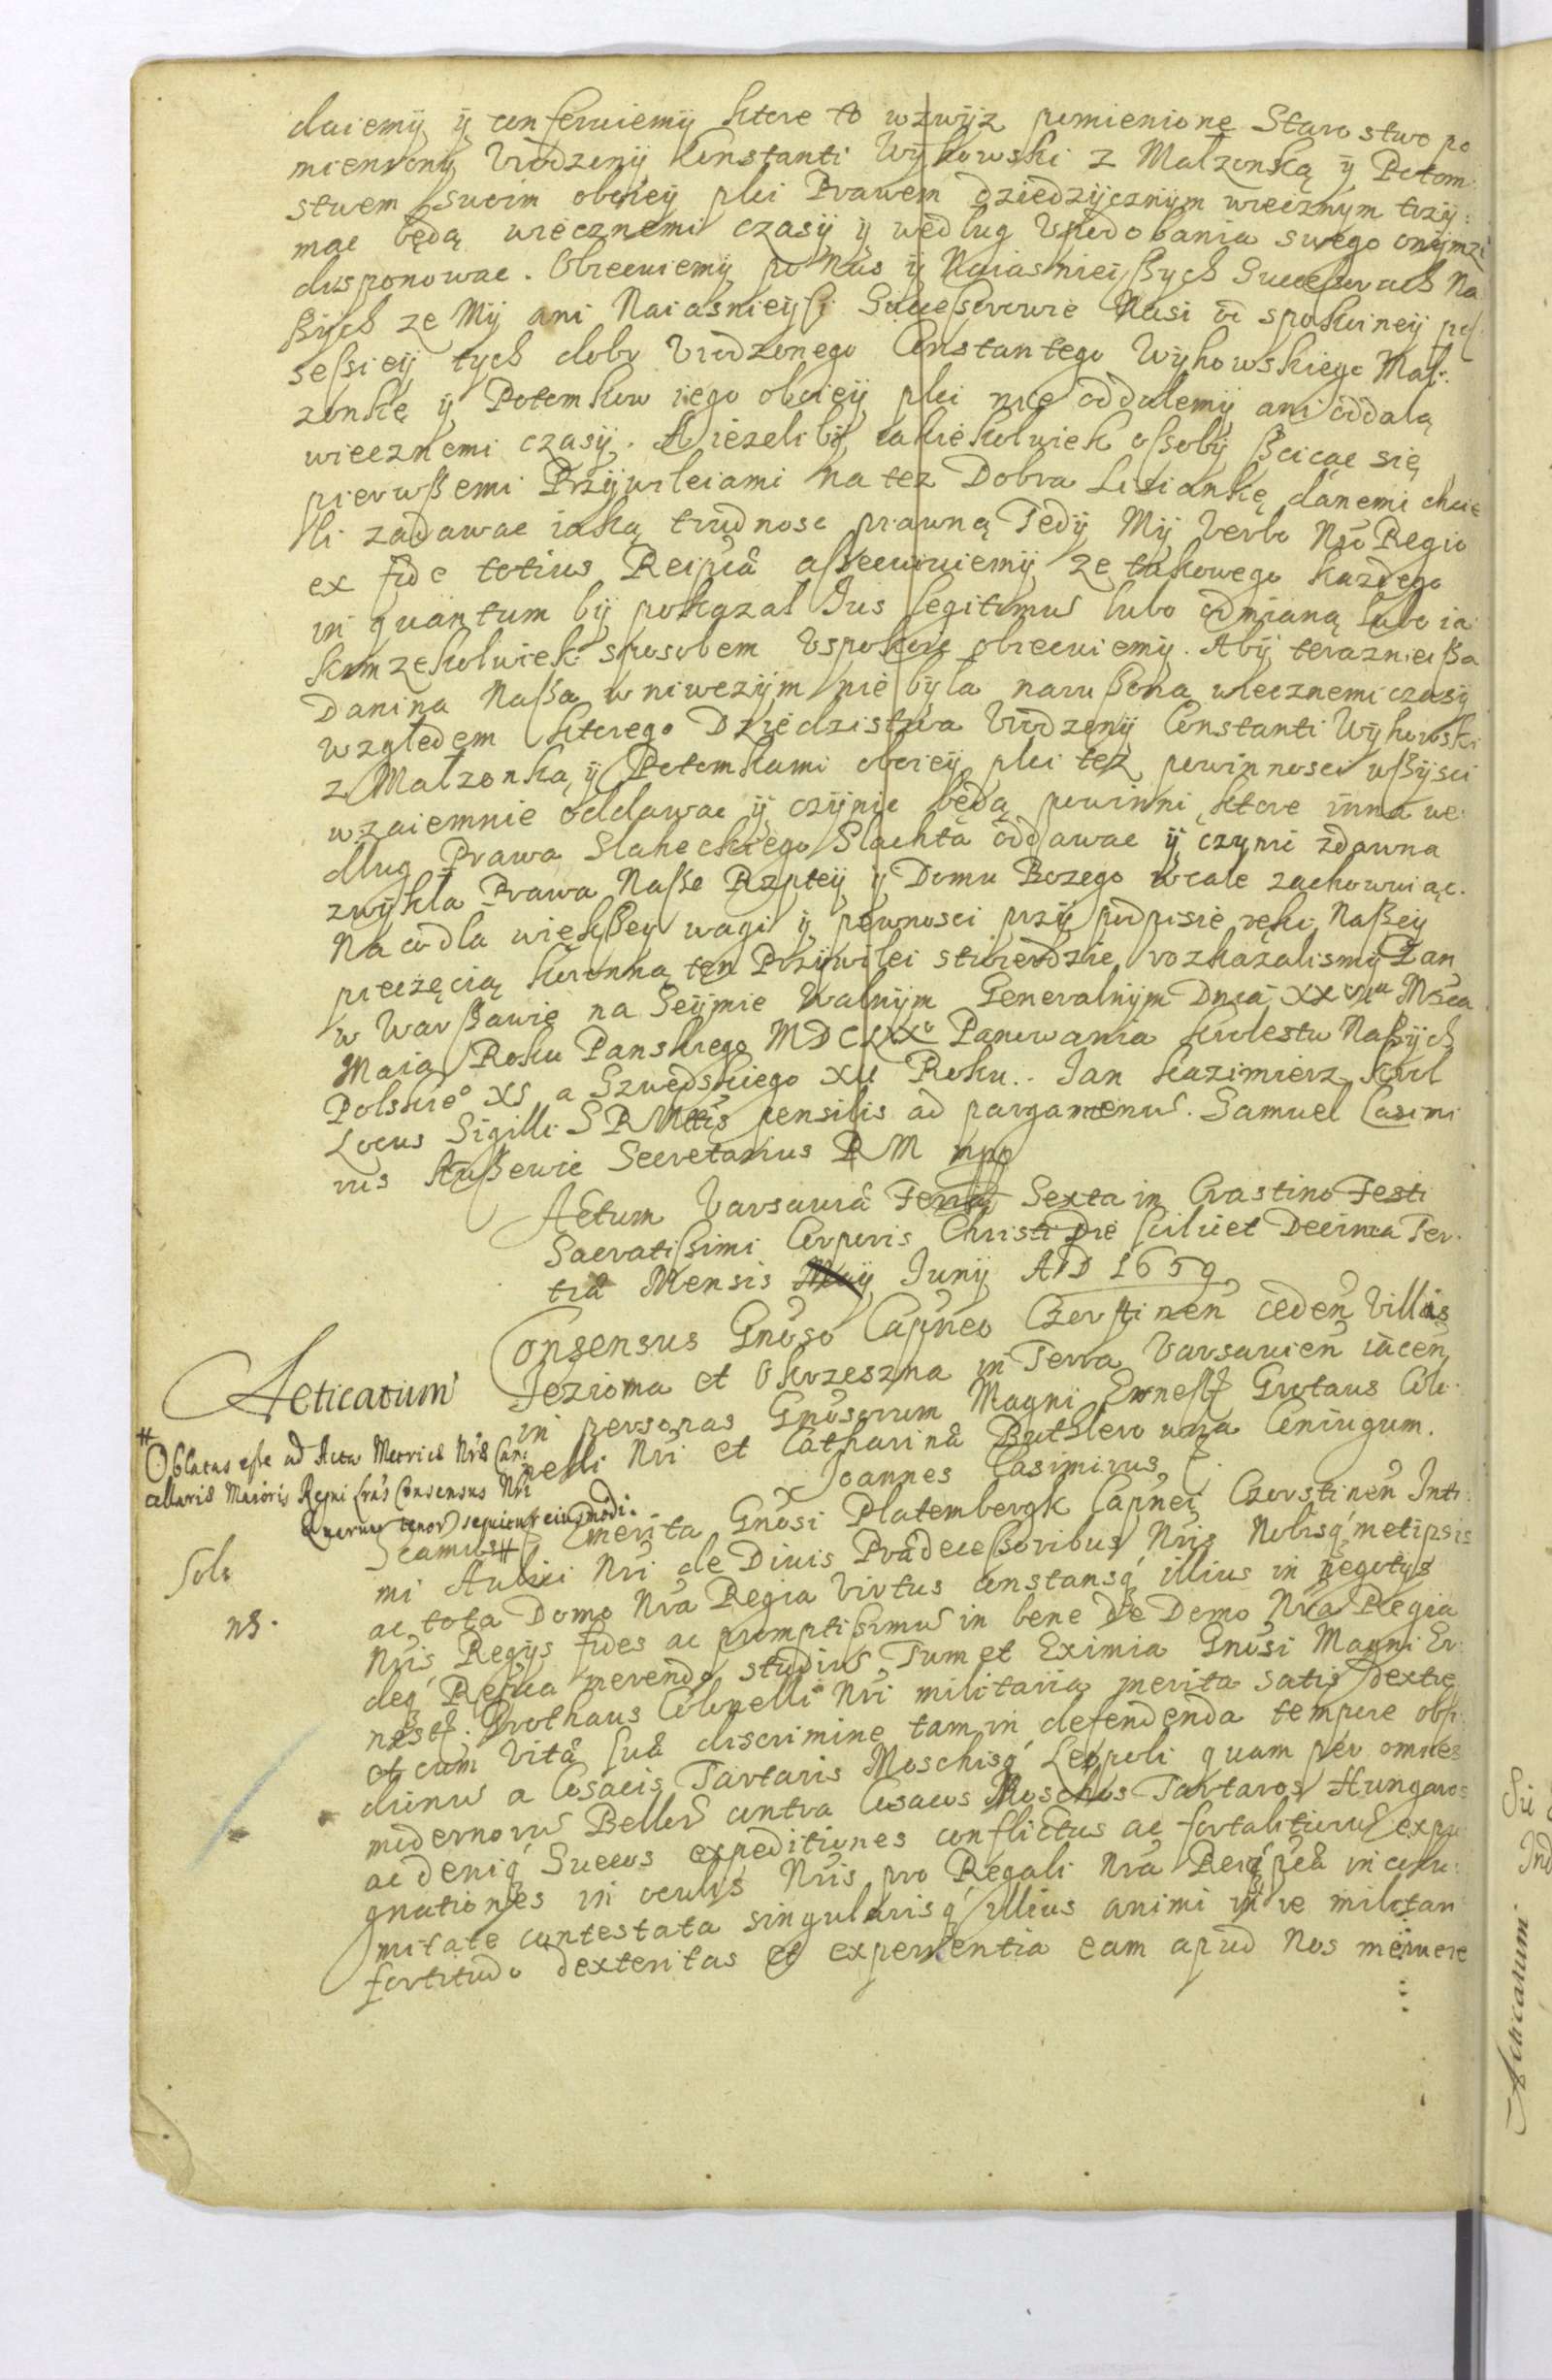 daiemÿ ÿ conferuiemÿ ktore to wzwÿz pomienione Starostwo po
mieniony Vrodzonÿ Constanti Wÿhowski z Malzonką ÿ Potom
stwem swoim oboieÿ plci Prawem dziedzÿcznÿm wiecznÿm trzÿ:
mac będą wiecznemi czasÿ ÿ według Vpodobania swego onÿmze
disponowac. Obiecuiemÿ po Nas ÿ Naiasnieißych Successorach Na
ßÿch ze Mÿ ani Naiasnieÿßi Successorowie Nasi od spokoineÿ pos
sessieÿ tÿch dobr Vrodzonego Constantego Wÿhowskiego Mal:
zonkę ÿ Potomkow iego oboieÿ plci nie oddalemÿ ani oddalą
wiecznemi czasÿ. A iezelibÿ iakiekolwiek ossobÿ ßcicac się
pierwßemi Przÿwileiami na tez Dobra Lisiankę danemi chcie
li zadawac iaką trudnosc prawną Tedÿ Mÿ Verbo Nro Regio
ex fide totius Reipcâ assecuruiemÿ ze takowego kazdego
in quantum bÿ pokazal Ius legitimum lubo odmianą lubo ia
kimzekolwiek sposobem Vspokoic obiecuiemÿ. Abÿ teraznieißa
Danina Naßa w niwczÿm nie bÿla narußona wiecznemi czasÿ
względem ktorego Dziedzistwa Vrodzonÿ Constanti Wÿhowski
z Malzonką ÿ Potomkami oboieÿ plci tez powinnosci wßÿsci
wzaiemnie oddawac ÿ czÿnic będą powinni ktore inna we:
dlug Prawa Slaheckiego Slachta oddawac ÿ czynic zdawna
zwÿkla Prawa Nasse Rzpteÿ ÿ Domu Bozego wcale zachowuiąc.
Na co dla więkßey wagi ÿ pewnosci przÿ podpisie ręki Naßeÿ
pieczęcią koronną ten Przÿwilei stwierdzic rozkazalismÿ Dan
w Warßawie na Seÿmie Walnÿm Generalnÿm Dnia XXVII Msca
Maia Roku Panskiego MDCLIX Panowania krolestw Naßÿch
Polskiego XI a Szwedskiego XII Roku. Jan Kazimierz krol
Locus Sigilli S R Mttis pensilis ad pargamenum. Samuel Casimi
rus Kußewic Secretarius R M mpp
Actum Varsaviâ Feria Sexta in Crastino Festi
Sacratissimi Corporis Christi Die scilicet Decima Ter
tia Mensis Maÿ Junÿ A D 1659
Consensus Gnoso Capneo Czerstinen ceden Villas
Jezioma et Okrzeszÿna in Terra Varsavien iacen
in personas Gnosorum Magni Ernesti Grotaus Colo
nelli Nri et Catharinâ Buthlerowna Coniugum.
Joannes Casimirus &.
Acticatum
# Oblatas esse ad Acta Metrices Nrs Can
cellaris Maioris Regni hras Consensus Nri
Quarum tenor sequitur eiusmodi.
Sol
ns.
meritа Gnosi Platembergk Capnei Czerstinen Inti
mi Aulici Nri de Divis Prædecessoribus Nris Nobisq metipsis
ac tota Domo Nra Regia Virtus constansq illius in negotÿs
Nris Regÿs fides ac promptissimum in bene de Domo Nra Regia
deq Repca merendo studium Tum et Eximia Gnosi Magni Er
nesti Grothaus Colonelli Nri militaria merita satis dextre
et cum Vitâ suâ discrimine tam in defendenda tempore obsi
dionis a Cosacis Tartaris Moschisq Leopoli quam per omnes
modernorum Bellorum contra Cosacos Moschos Tartaros Hungaros
ac deniq Suecos expeditiones conflictus ac fortalitiorum expu
gnationes in oculis Nris pro Regali Nra Reiq pcâ incolu
mitate contestata singularisq illius animi in re militari
fortitudo dexteritas et experientia eam apud Nos meruere
Acticatum